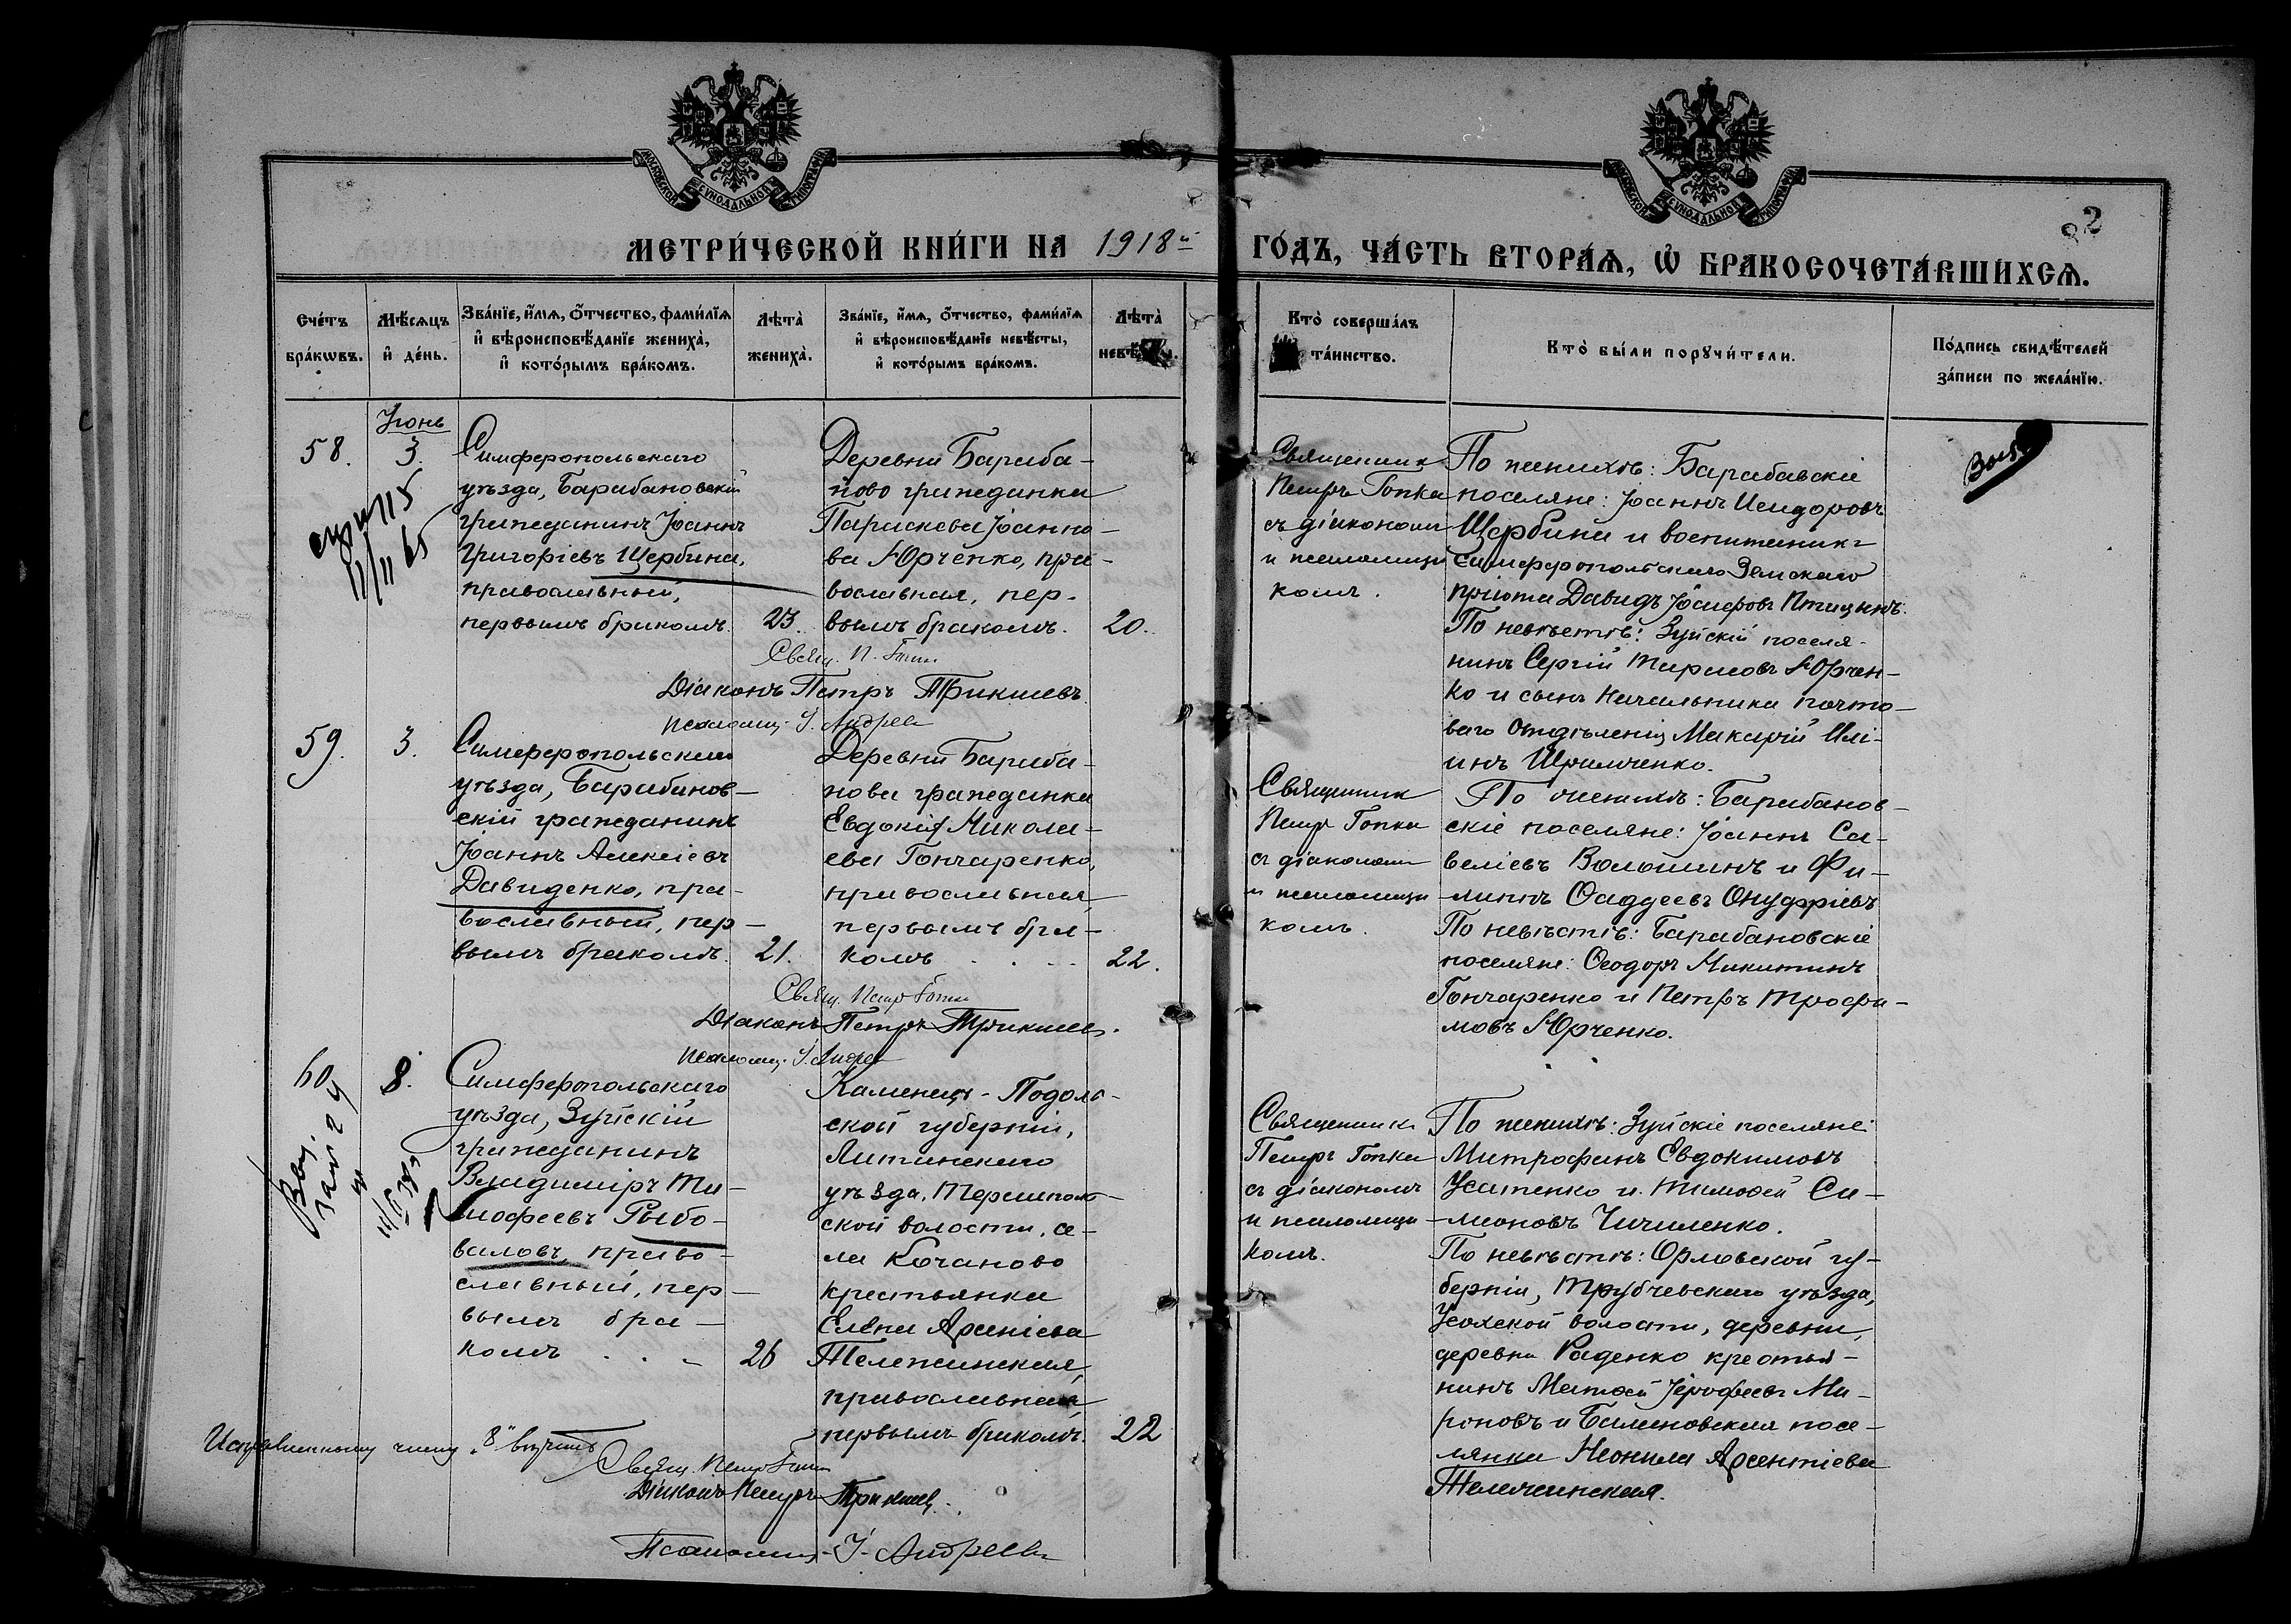 МОСКОВСКОЙ СѴНОДАЛЬНОЙ ТИПОГРАФІИ
МОСКОВСКОЙ СѴНОДАЛЬНОЙ ТИПОГРАФІИ
82
МЕТРИ́ЧЕСКОЙ КНИ́ГИ НА 1918й ГО́ДЪ, ЧА́СТЬ ВТОРА́Ѧ, Ѽ БРАКОСОЧЕТА́ВШИХСѦ.
Сче́тъ бра́кѡвъ.
Мѣ́сѧцъ и҆ де́нь.
Зва́нїе, и҆́мѧ, ѻ҆́тчество, фами́лїѧ
и҆ вѣроисповѣ́данїе жениха̀,
и҆ кото́рымъ бра́комъ.
Лѣта̀ жениха̀.
Зва́нїе, и҆́мѧ, ѻ҆́тчество, фами́лїѧ
и҆ вѣроисповѣ́данїе невѣ́сты,
и҆ кото́рымъ бра́комъ.
Лѣта̀
Кто̀ соверша́лъ
та́инство.
Кто̀ бы́ли порꙋчи́тели.
По́дпись свидѣ́телей
за́писи по жела́нїю.
Іюнь
58.
3.
11/11 65
Симферопольскаго
уѣзда, Барабановскій
гражданинъ Іоаннъ
Григоріевъ Щербина,
православный,
первымъ бракомъ.
23.
Деревни Бараба-
ново гражданка
Параскева Іоанно-
ва Юрченко, пра-
вославная, пер-
вымъ бракомъ.
20.
Священникъ
Петръ Гопка
съ діакономъ
и псаломщи
комъ.
По женихѣ: Барабавскіе
поселяне: Іоаннъ Исидоровъ
Щербина и воспитанникъ
Симферопольскаго Земскаго
пріюта Давидъ Іосифовъ Птицынъ.
По невѣстѣ: Зуйскій поселя-
нинъ Сергій Тарасовъ Юрчен-
ко и сынъ Начальника почто-
ваго отдѣленія Макарій Илі-
инъ
Свящ. П. Гопка
Діаконъ Петръ Трикишевъ
Псаломщ. І. Андреев
59.
3.
Симферопольскаго
уѣзда, Барабанов-
скій гражданинъ
Іоаннъ Алексіевъ
Давиденко, пра-
вославный, пер-
вымъ бракомъ.
21.
Деревни Бараба-
нова гражданка
Евдокія Никола-
ева Гончаренко,
православная,
первымъ бра-
комъ
22.
Священникъ
Петръ Гопка
съ діакономъ
и псаломщи
комъ.
По женихѣ: Барабанов-
скіе поселяне: Іоаннъ Са-
веліевъ Волошинъ и Фи-
липпъ Ѳаддеевъ Онуфріевъ
По невѣстѣ: Барабановскіе
поселяне: Ѳеодоръ Никитинъ
Гончаренко и Петръ Трофи-
мовъ Юрченко.
Свящ. Петр Гопка
Діаконъ Петръ Трикишев.
Псаломщ. І. Андрев
60
8.
Симферопольскаго
уѣзда, Зуйскій
гражданинъ
Владиміръ Ти-
мофеевъ Рыбо-
валовъ, право-
славный, пер-
вымъ бра-
комъ
26
Каменецъ-Подоль-
ской губерніи,
Литинскаго
уѣзда,
ской волости, се-
ла Кочаново
крестьянка
Елена Арсеніева
Тележинская,
православная,
первымъ бракомъ.
22
Священникъ
Петръ Гопка
съ діакономъ
и псаломщи
комъ.
По женихѣ: Зуйскіе поселяне:
Митрофанъ Евдокимовъ
Усатенко и Тимофей Си-
меоновъ Чичиленко.
По невѣстѣ: Орловской гу-
берніи, Трубчевскаго уѣзда,
Усохской волости, деревни,
деревни Раденко крестья-
нинъ Матвей Іерофеевъ Ми-
роновъ и Балановская посе-
лянка Неонила Арсентіева
Тележинская.
Исправленному числу „8“ вѣрить
Свящ. Петр Гопка
Діаконъ Петръ Трикишев.
Псаломщ. І. Андреевъ